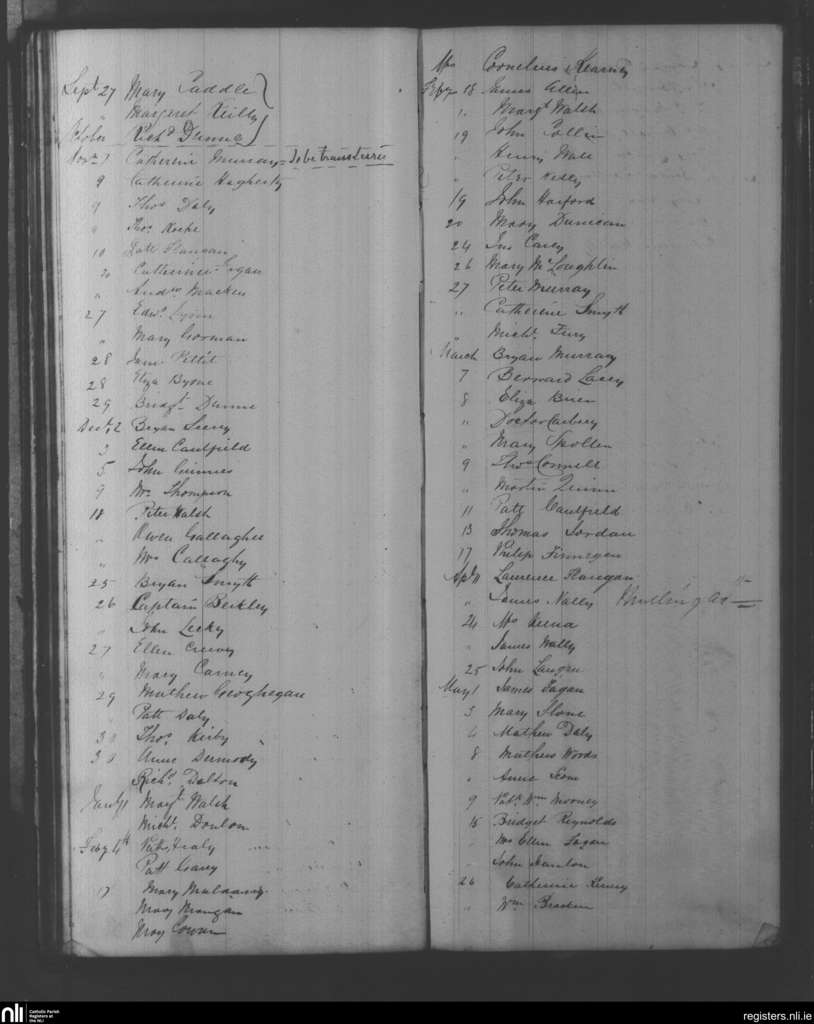 Sept 27 Mary Caddle
" Margaret Reilly
October Richd Dunne
Novr 7 Catherine Murray = To be transferred
9 Catherine Hagherty
9 Thos Daly
" Thos Keefe
10 Patt Flanagan
20 Catherine Egan
" Andrw Macken
27 Edwd Lyons
" Mary Gorman
28 James Pettit
28 Eliza Byrne
29 Bridgt Dunne
Decr 2 Bryan Seery
3 Ellen Caulfield
5 John Guinnes
9 Mr Thompson
18 Peter Walsh
" Owen Gallagher
" Mrs Callaghy
25 Bryan Smyth
26 Captain Berkley
" John Lecky
27 Ellen
" Mary Carney
29 Mathew Geoghegan
" Patt Daly
30 Thos Kirby
30 Anne Dermody
Richd Dalton
Jany 1 Margt Walsh
Michl Donlon
Feby 4th Patt Healy
Patt Garry
17 Mary
Mary Mangan
Mary Cowan
Mrs Cornelius Kearney
Feby 18 James Allen
" Margt Walsh
19 John Collin
" Henry Wall
" Peter Kelly
19 John Harford
20 Mary Duncan
24 Jno Casey
26 Mary McLoughlin
27 Peter Murray
" Catherine Smyth
" Michl Fury
March Bryan Murray
7 Bernard Lacey
8 Eliza Brien
" Doctor Carbery
" Mary Spollen
9 Thos Connell
" Martin Quinn
11 Patt Caulfield
13 Thomas Jordan
17 Philip Finnegan
Apl 11 Laurence Flanagan
" James Nally Mullingar
24 Mrs
" James Nally
25 John Langan
May 1 James Fagan
3 Mary Slone
4 Mathew Daly
8 Mathew Woods
" Anne
9 Patk Wm Mooney
15 Bridget Reynolds
" Mrs Ellen Fagan
" John Hanlon
26 Catherine Kenny
" Wm Bracken
nli Catholic Parish Registers at the NLI
registers.nli.ie